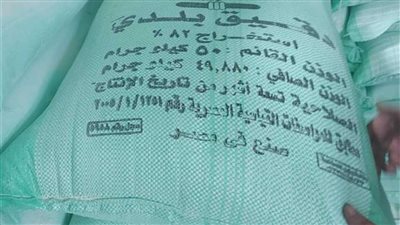 دقيق بلدي
استخراج ٨٢ ٪
الوزن القائم : ٥٠ كيلو جرام
الوزن الصافي : ٤٩,٨٨٠ كيلو جرام
الصلاحية تسعة أشهر من تاريخ الإنتاج
مطابق للمواصفات القياسية المصرية رقم ١٢٥١/ ١ /٢٠٠٥
صنع في مصر
سجل رقم